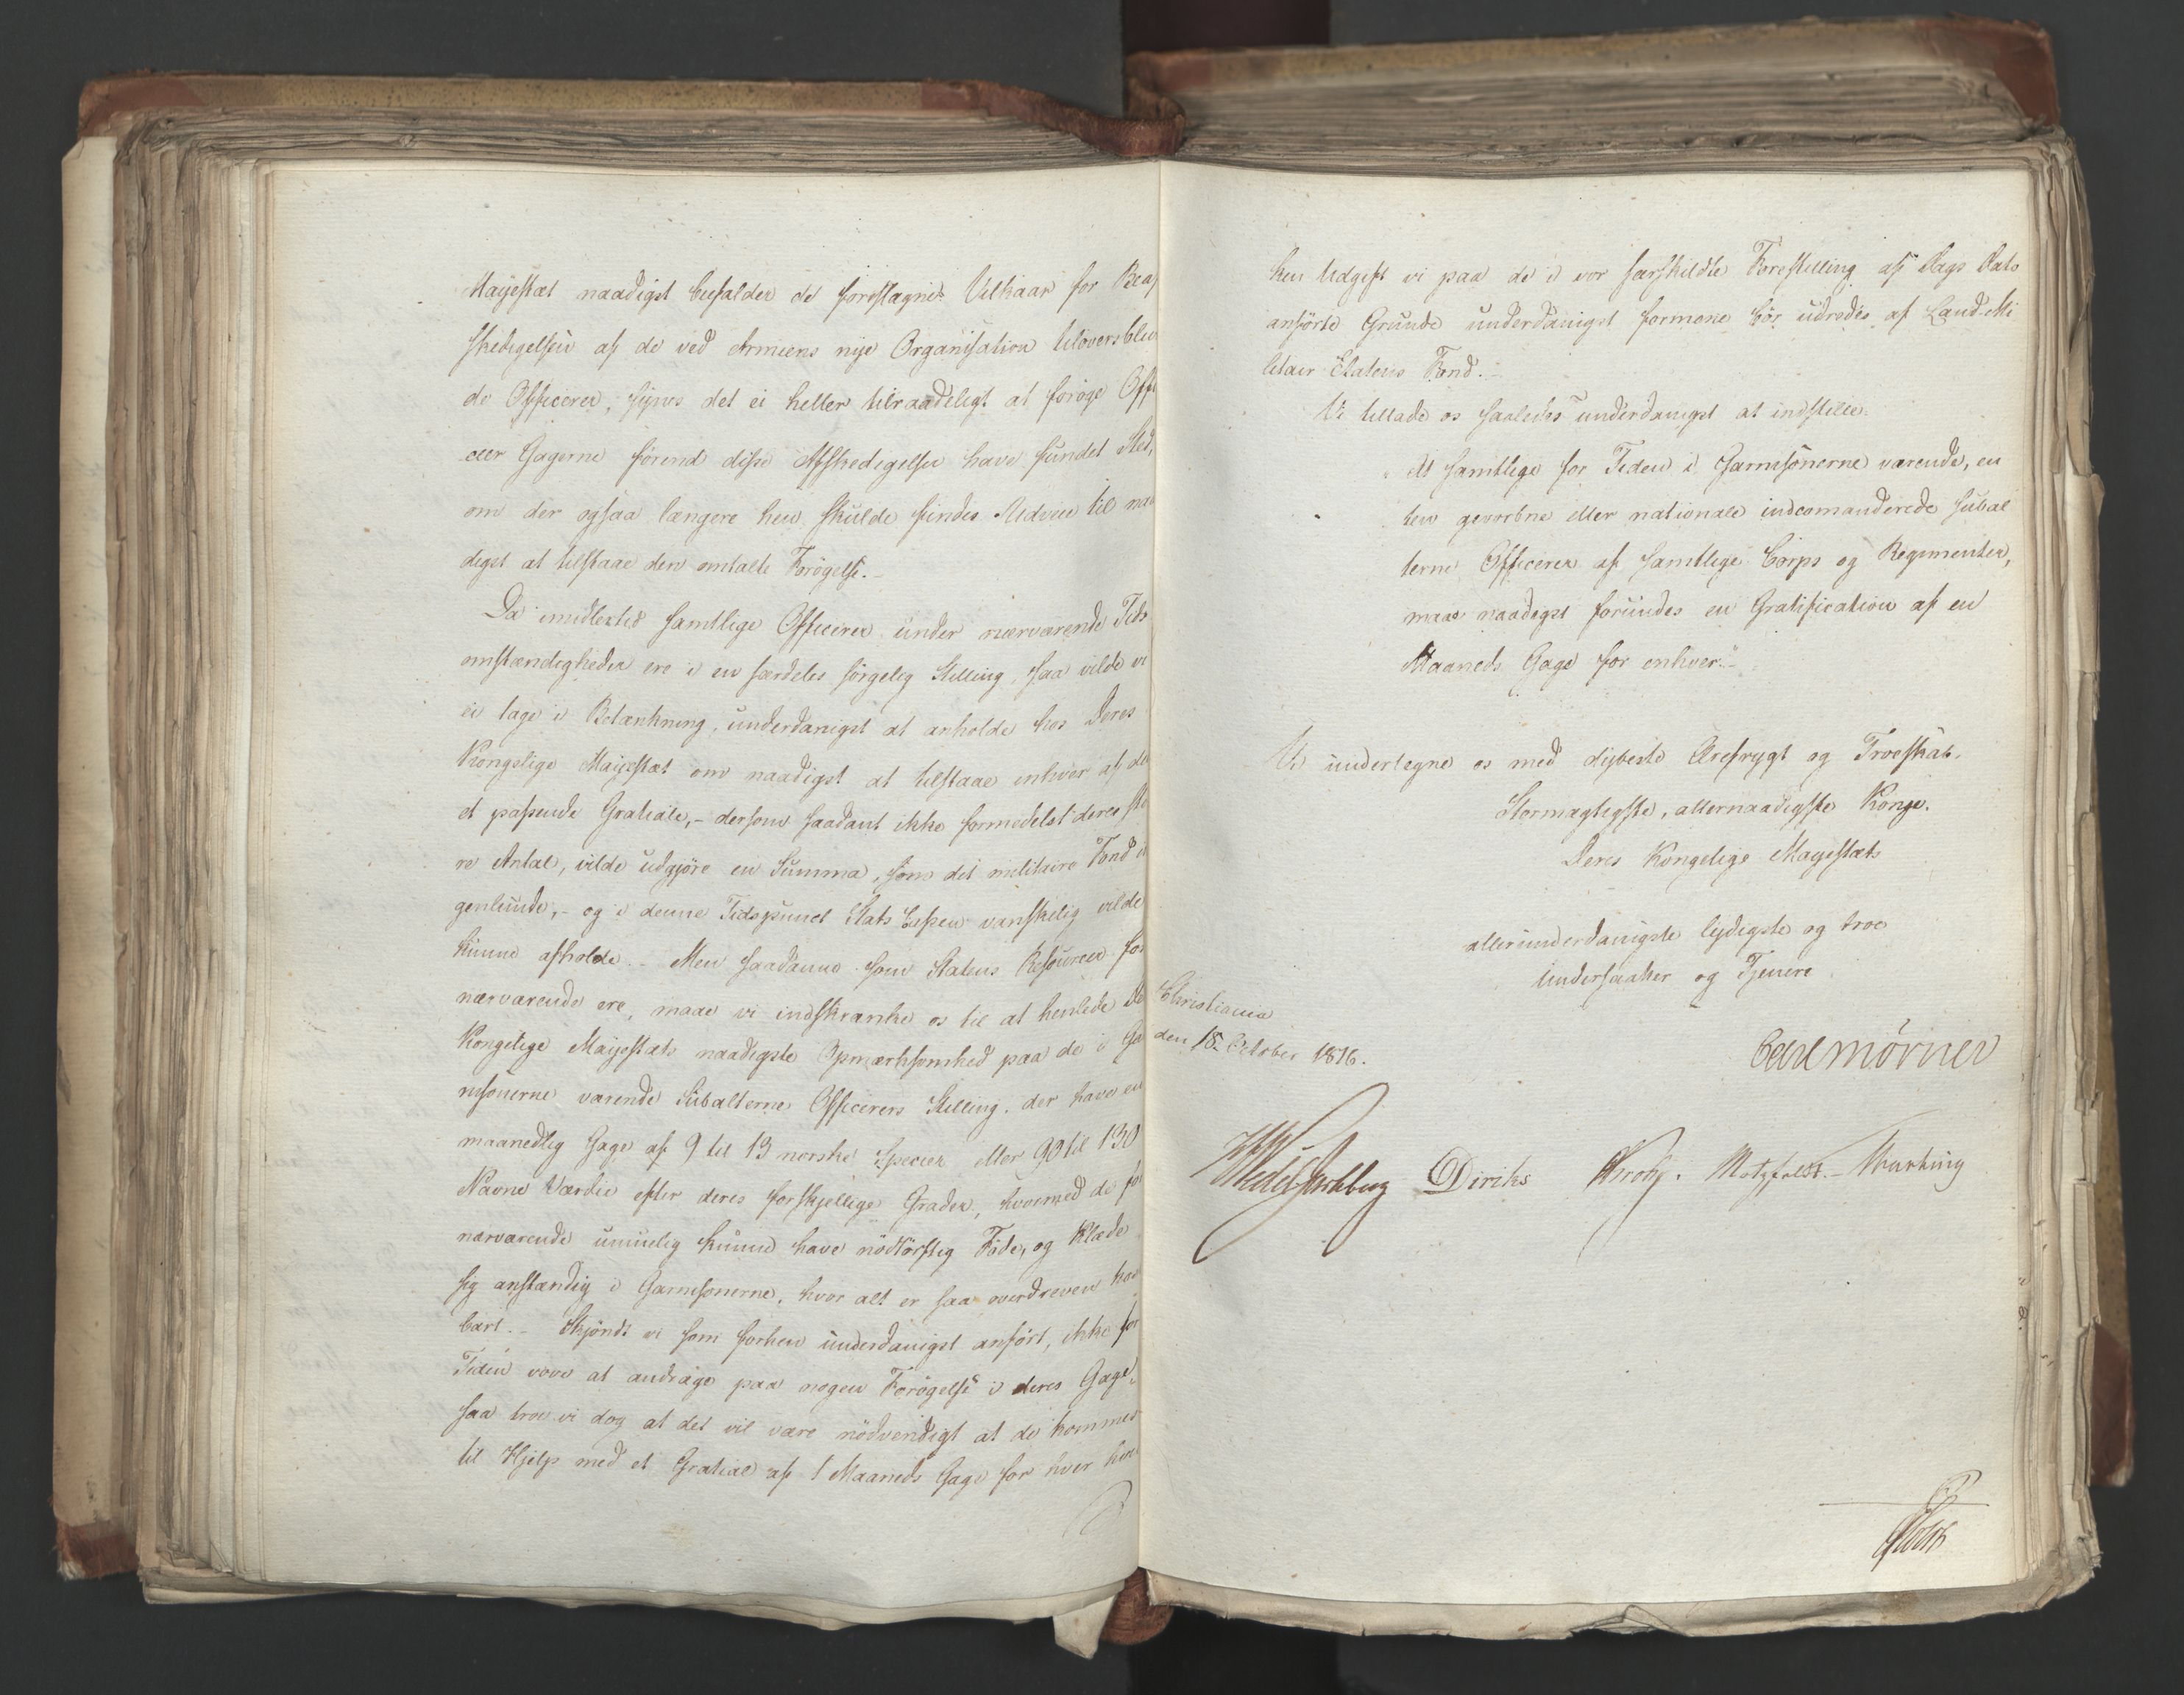 Majestæt naadigst bifalder de foreslagne Vilkaar for Beaf
skedigelsen af de ved Armeens nye Organisation tiloversblev
de Officerer, synes det ei heller tilraadeligt at foröge Offi
ceer Gagerne förend disse Afskedigelser have fundet Sted,
om der ogsaa længere hen skulde findes Udvei til naa
digst at tilstaae den omtalte Forögelse.
Da imidlertid samtlige Officerer under nærværende Tids
omstændigheder ere i en særdeles sörgelig Stilling, saa vilde vi
ei tage i Betænkning, underdanigst at anholde hos Deres
Kongelige Majestæt om naadigst at tilstaae enhver af de
et passende Gratiale,- dersom saadant ikke formedelst deres stö
re Antal, vilde udgjöre en Summa, som det militaire Fond i
genlunde,- og i denne Tidspunct Stats Cassen vanskelig vilde
kunne afholde.- Men saadanne som Statens Resourcer for
nærværende ere, maae vi indskrænke os til at henlede De
Kongelige Majestæts naadigste Opmærksomhed paa de i Ga
nisonerne værende Subalterne Officerers Stilling, der have en
maanedlig Gage af 9 til 13 norske Specier eller 90 til 130
Navne Værdie efter deres forskjellige Grader, hvormed de for
nærværende umuelig kunne have nödtörftig Föde, og Klæde
sig anstændig i Garnisonerne, hvor alt er saa overdreven kos
bart.- Skjöndt vi som forhen underdanigst anfört, ikke for
Tiden vove at andrage paa nogen Forögelse i deres Gage,
saa troe vi dog at det vil være nödvendigt at de kommes
til Hjelp med et Gratiale af 1 Maaneds Gage for hver
ken Udgift vi paa de i vor særskildte Forestilling af Dags Dato
anförte Grunde underdanigst formene bör udredes af Land-Mi
litair Etatens Fond.-
Vi tillade os saaledes underdanigst at indstille:
At samtlige for Tiden i Garnisonerne værende, en
ten gevorbne eller nationale indcomanderede Subal
terne Officerer af samtlige Corps og Regimenter,
maae naadigst forundes en Gratification af en
Maaneds Gage for enhver."-
Vi undertegne os med dybeste Ærefrygt og Troeskab.
Stormægtigste, allernaadigste Konge.
Deres Kongelige Majestæts
allerunderdanigste lydigste og troe
Undersaatter og Tjenere
Christiania
den 18 October 1816.
Carl Mörner
Wedel Jarlsberg Diriks Krohg. Motzfeldt.- 
Holst